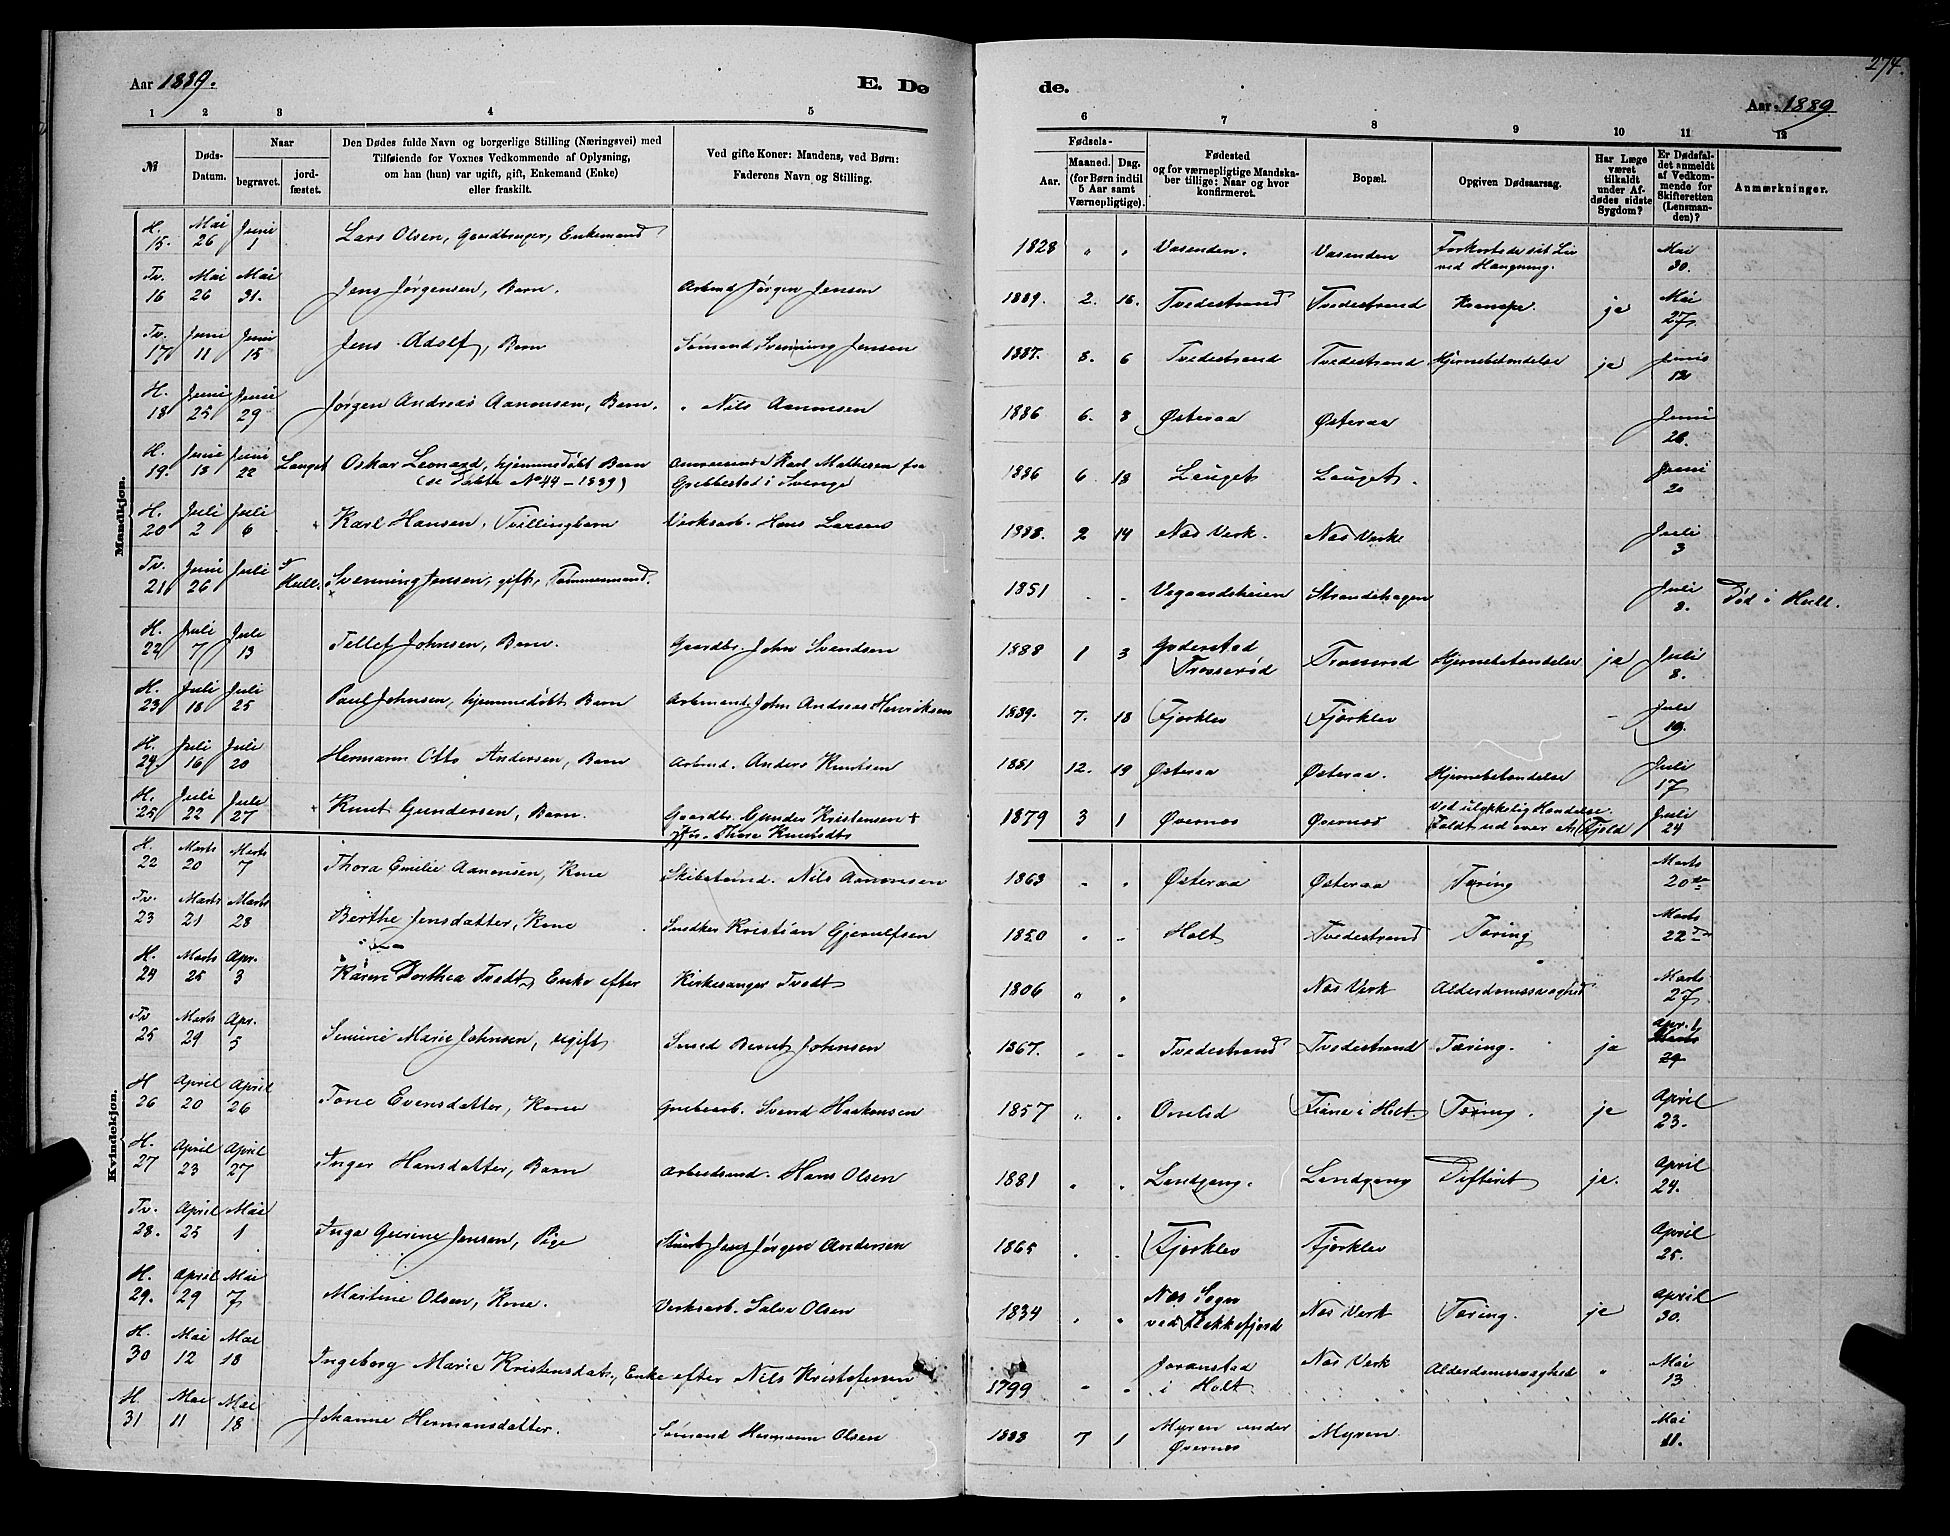 Aar 1889.
E. Dø
de.
274.
Aar 1889
1 2 3 4 5
6 7 8 9 10 11 12
№
Døds-Datum.
Naar
begravet.
jordfæstet.
Den Dødes fulde Navn og borgerlige Stilling (Næringsvei) med
Tilføiende for Voxnes Vedkommende af Oplysning,
om han (hun) var ugift, gift, Enkemand (Enke)
eller fraskilt.
Ved gifte Koner: Mandens, ved Børn:
Faderens Navn og Stilling.
Fødsels-
Aar.
Maaned. Dag.
(for Børn indtil
5 Aar samt
Værnepligtige).
Fødested
og for værnepligtige Mandska-
ber tillige: Naar og hvor
konfirmeret.
Bopæl.
Opgiven Dødsaarsag.
Har Læge
været
tilkaldt
under Af-
dødes sidste
Sygdom?
Er Dødsfal-
det anmeldt
af Vedkom-
mende for
Skifteretten
(Lensman-
den)?
Anmærkninger.
Mandkjøn.
H. 15. Mai 26 Juni 1 Lars Olsen, Gaardbruger, Enkemand 1828 " " Vasenden. Vasenden Forkortede sit Liv ved Hængning. Mai 30.
Tv. 16 Mai 26 Mai 31. Jens Jørgensen, Barn. Arbmd Jørgen Jensen 1889. 2. 16. Tvedestrand Tvedestrand Krampe. ja Mai 27
Tv. 17 Juni 11 Juni 15 Jens Adolf, Barn Sømand Svenning Jensen 1887. 8. 6 Tvedestrand Tvedestrand Hjernebetændelse ja Juni 12
H. 18 Juni 25 Juni 29 Jørgen Andreas Aanonsen, Barn. " Nils Aanonsen 1886 6. 8 Østeraa Østeraa Juni 26.
H. 19. Juni 18 Juni 22 Lauget Oskar Leonard, hjemmedøbt Barn (se Døbte No 44-1889) Karl Mathisen fra Grebbestad i Sverige 1886 6 18 Lauget Lauget. Juni 20
H. 20 Juli 2 Juli 6 Karl Hansen, Tvillingbarn Verksarb. Hans Larsen 1888. 2 14 Næs Verk. Næs Verk Juli 3
Tv. 21 Juni 26 Juli Hull. Svenning Jensen, gift, Tømmermand. 1851 " " Vegaardsheien Strandehagen Juli 8. Død i Hull.
H. 22 Juli 7 Juli 13 Tellef Johnsen, Barn. Gaardbr. John Svendsen 1888 1 3 Goderstad Trosserød Trosserød Hjernebetændelse ja Juli 8.
H. 23 Juli 18 Juli 25 Paul Johnsen, hjemmedøbt Barn Arbmand John Andreas Henriksen 1889. 7. 18 Fjørklev Fjørklev – Juli 19.
H. 24. Juli 16 Juli 20 Hermann Otto Andersen, Barn Arbmd. Anders Knutsen 1881 12. 19 Østeraa Østeraa. Hjernebetændelse Juli 17
H. 25 Juli 22 Juli 27 + Knut Gundersen, Barn. Gaardbr. Gunder Kristensen + Thore Knutsdtr 1879 3 1 Øvernes Øvernes Ved ulykkelig Hændelse. Faldt ud over et Fjeld Juli 24
Kvindekjøn.
H. 22 Marts 20 Marts 7 Thora Emilie Aanonsen, Kone Skibstmd. Nils Aanonsen 1863 " " Østeraa Østeraa Tæring Marts 20de
Tv. 23 Marts 21 Marts 28 Berthe Jensdatter, Kone Snedker Kristian Gjerulfsen 1850 " " Holt Tvedestrand Tæring Marts 22de
H. 24 Marts 25 Apr. 3 Karen Dorthea Tvedt, Enke efter Kirkesanger Tvedt 1806 " " Næs Verk Alderdomssvaghed Marts 27
Tv 25 Marts 29 Apr. 5 Marie Johnsen, ugift Smed Bernt Johnsen 1867. " " Tvedestrand Tvedestrand Tæring. ja Apr. 1 Marts 29
H 26 April 20 April 26 Tone Evensdatter, Kone Grubearb. Svend Haakensen 1857 " " Omlid Fiane i Holt. Tæring. ja April 23.
H. 27 April 23 April 27 Inger Hansdatter, Barn Arbeidsmd. Hans Olsen 1881 " " Landgang. Landgang Difterit ja. April 24.
Tv. 28. April 25 Mai 1 Inga Gurine Jensen, Pige Jens Jørgen Andersen 1865 " " Fjørklev Fjørklev April 25.
H. 29. April 29 Mai 7 Martine Olsen, Kone. Verksarb. Salve Olsen 1834 " " Næs Sogn ved Flekkefjord Næs Verk Tæring. ja April 30.
H. 30 Mai 12 Mai 18 Ingeborg Marie Kristensdatr., Enke efter Nils Kristofersen 1799 " " Joranstad i Holt. Næs Verk Alderdomssvaghed " Mai 13
H. 31 Mai 11 Mai 18 Johanne Hermansdatter. Sømand Hermann Olsen 1888 7 1 Myren under Øvernes Myren. Mai 11.